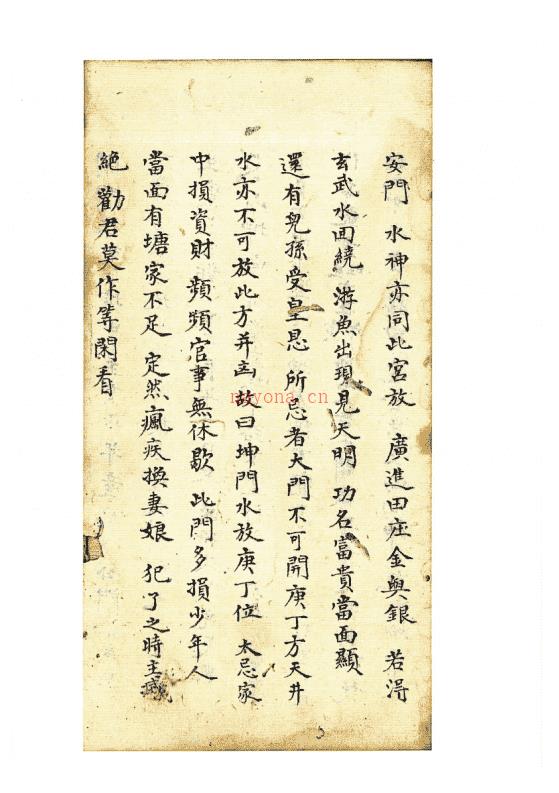 安門　水神亦同此宮放　廣進田庄金與銀　若淂
玄武水囬繞　游魚出現見天明　功名富貴當面顯
還有兒孫受皇恩　所忌者大門不可開庚丁方天井
水亦不可放此方并凶　故曰坤門水放庚丁位　太忌家
中損資財　頻頻官事無休歇　此門多損少年人
當面有塘家不足　定然瘋疾換妻娘　犯了之時主滅
絶　勸君莫作等閑看
nayona.cn